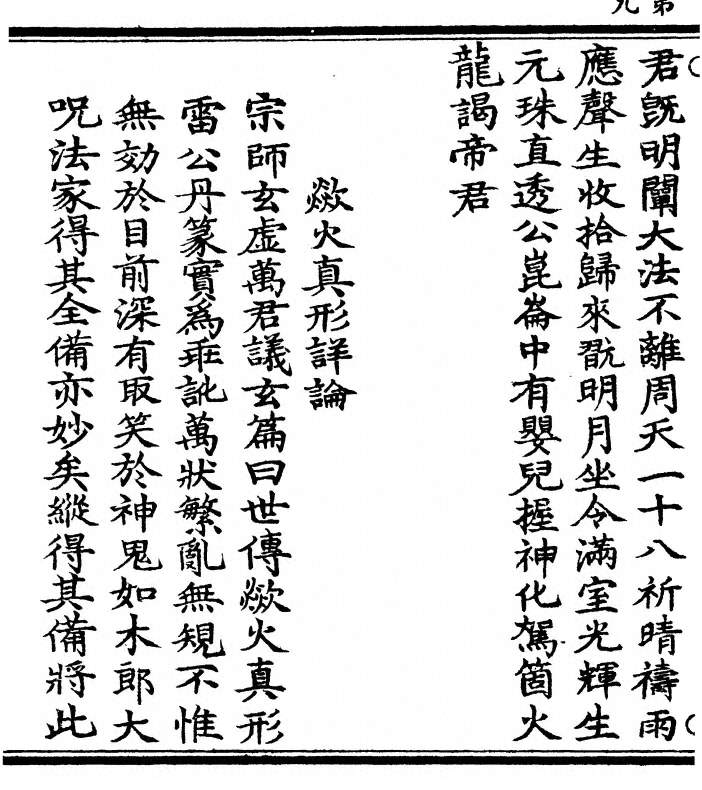 君既明闡大法不離周天一十八祈晴禱雨
應聲生收拾歸來翫明月坐令滿室光輝生
元珠直透公崑崙中有嬰兒握神化駕箇火
龍謁帝君
歘火真形詳論
宗師玄虛萬君議玄篇曰世傳歘火真形
雷公丹篆實爲乖訛萬狀繁亂無規不惟
無効於目前深有取笑於神鬼如木郎大
呪法家得其全備亦妙矣縱得其備將此